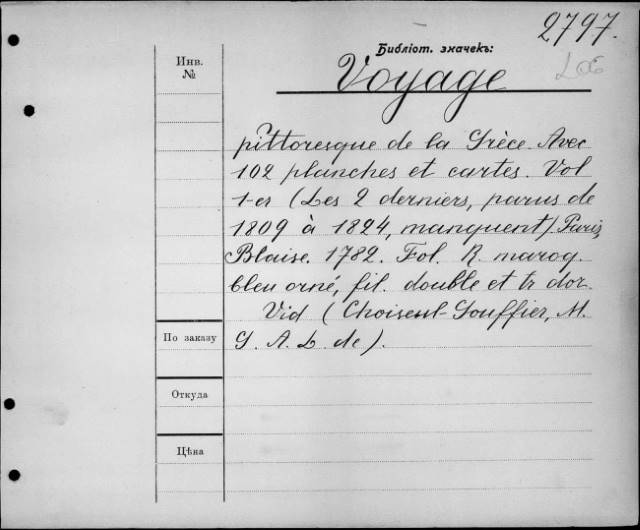 2797.
Библіот. значекъ:
Voyage
Инв.
№
pittoresque de la Grèce. Avec
102 planches et cartes. Vol
1-er (Les 2 derniers, parus de
1809 à 1824, manquent) Paris,
Blaise. 1782. Fol. R. maroq.
bleu orné, fil. double et tr dor.
Vid (Choiseul-Gouffier, M.
G. A. L. de).
По заказу
Откуда
Цѣна